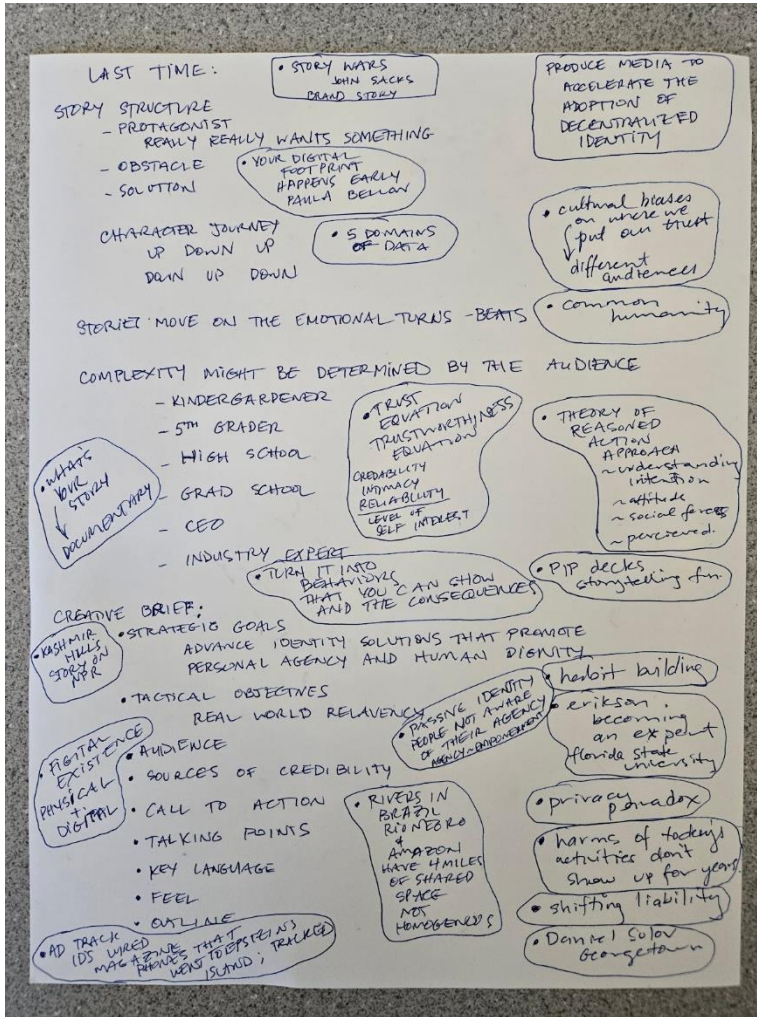 LAST TIME:
• STORY WARS
JOHN SACKS
BRAND STORY
PRODUCE MEDIA TO
ACCELERATE THE
ADOPTION OF
DECENTRALIZED
IDENTITY
STORY STRUCTURE
- PROTAGONIST
REALLY REALLY WANTS SOMETHING
- OBSTACLE
- SOLUTION
• YOUR DIGITAL
FOOTPRINT
HAPPENS EARLY
PAULA
• cultural biases
on where we
put our trust
different
audiences
CHARACTER JOURNEY
UP DOWN UP
DOWN UP DOWN
• 5 DOMAINS
OF DATA
• common
humanity
STORIES MOVE ON THE EMOTIONAL TURNS - BEATS
COMPLEXITY MIGHT BE DETERMINED BY THE AUDIENCE
- KINDERGARDENER
- 5TH GRADER
- HIGH SCHOOL
- GRAD SCHOOL
- CEO
- INDUSTRY EXPERT
• WHATS
YOUR
STORY
DOCUMENTARY
• TRUST
EQUATION
TRUSTWORTHINESS
EQUATION
CREDABILITY
INTIMACY
RELIABILITY
LEVEL OF
SELF INTEREST
• THEORY OF
REASONED
ACTION
APPROACH
~ understanding
intention
~ attitude
~ social forces
~ percieved.
• TURN IT INTO
BEHAVIORS
THAT YOU CAN SHOW
AND THE CONSEQUENCES
• PIP decks
storytelling fun.
CREATIVE BRIEF:
• KASHMIR
HILLS
STORY ON
NPR
• STRATEGIC GOALS
ADVANCE IDENTITY SOLUTIONS THAT PROMOTE
PERSONAL AGENCY AND HUMAN DIGNITY
• TACTICAL OBJECTIVES
REAL WORLD RELAVENCY
• PASSIVE IDENTITY
PEOPLE NOT AWARE
OF THEIR AGENCY
AGENCY ~ EMPOWERMENT
• habit building
• erikson.
becoming
an expert
florida state
university
• FIGITAL
EXISTENCE
PHYSICAL
+
DIGITAL
• AUDIENCE
• SOURCES OF CREDIBILITY
• CALL TO ACTION
• TALKING POINTS
• KEY LANGUAGE
• FEEL
• OUTLINE
• RIVERS IN
BRAZIL
RIO NEGRO
+
AMAZON
HAVE 4 MILES
OF SHARED
SPACE
NOT
HOMOGENEOS
• privacy
paradox
• harms of today's
activities don't
show up for years.
• shifting liability
• Daniel Solov
Georgetown
• AD TRACK
IDS WIRED
MAGAZINE
PHONES THAT
WENT TO EPSTEINS
ISLAND; TRACKED